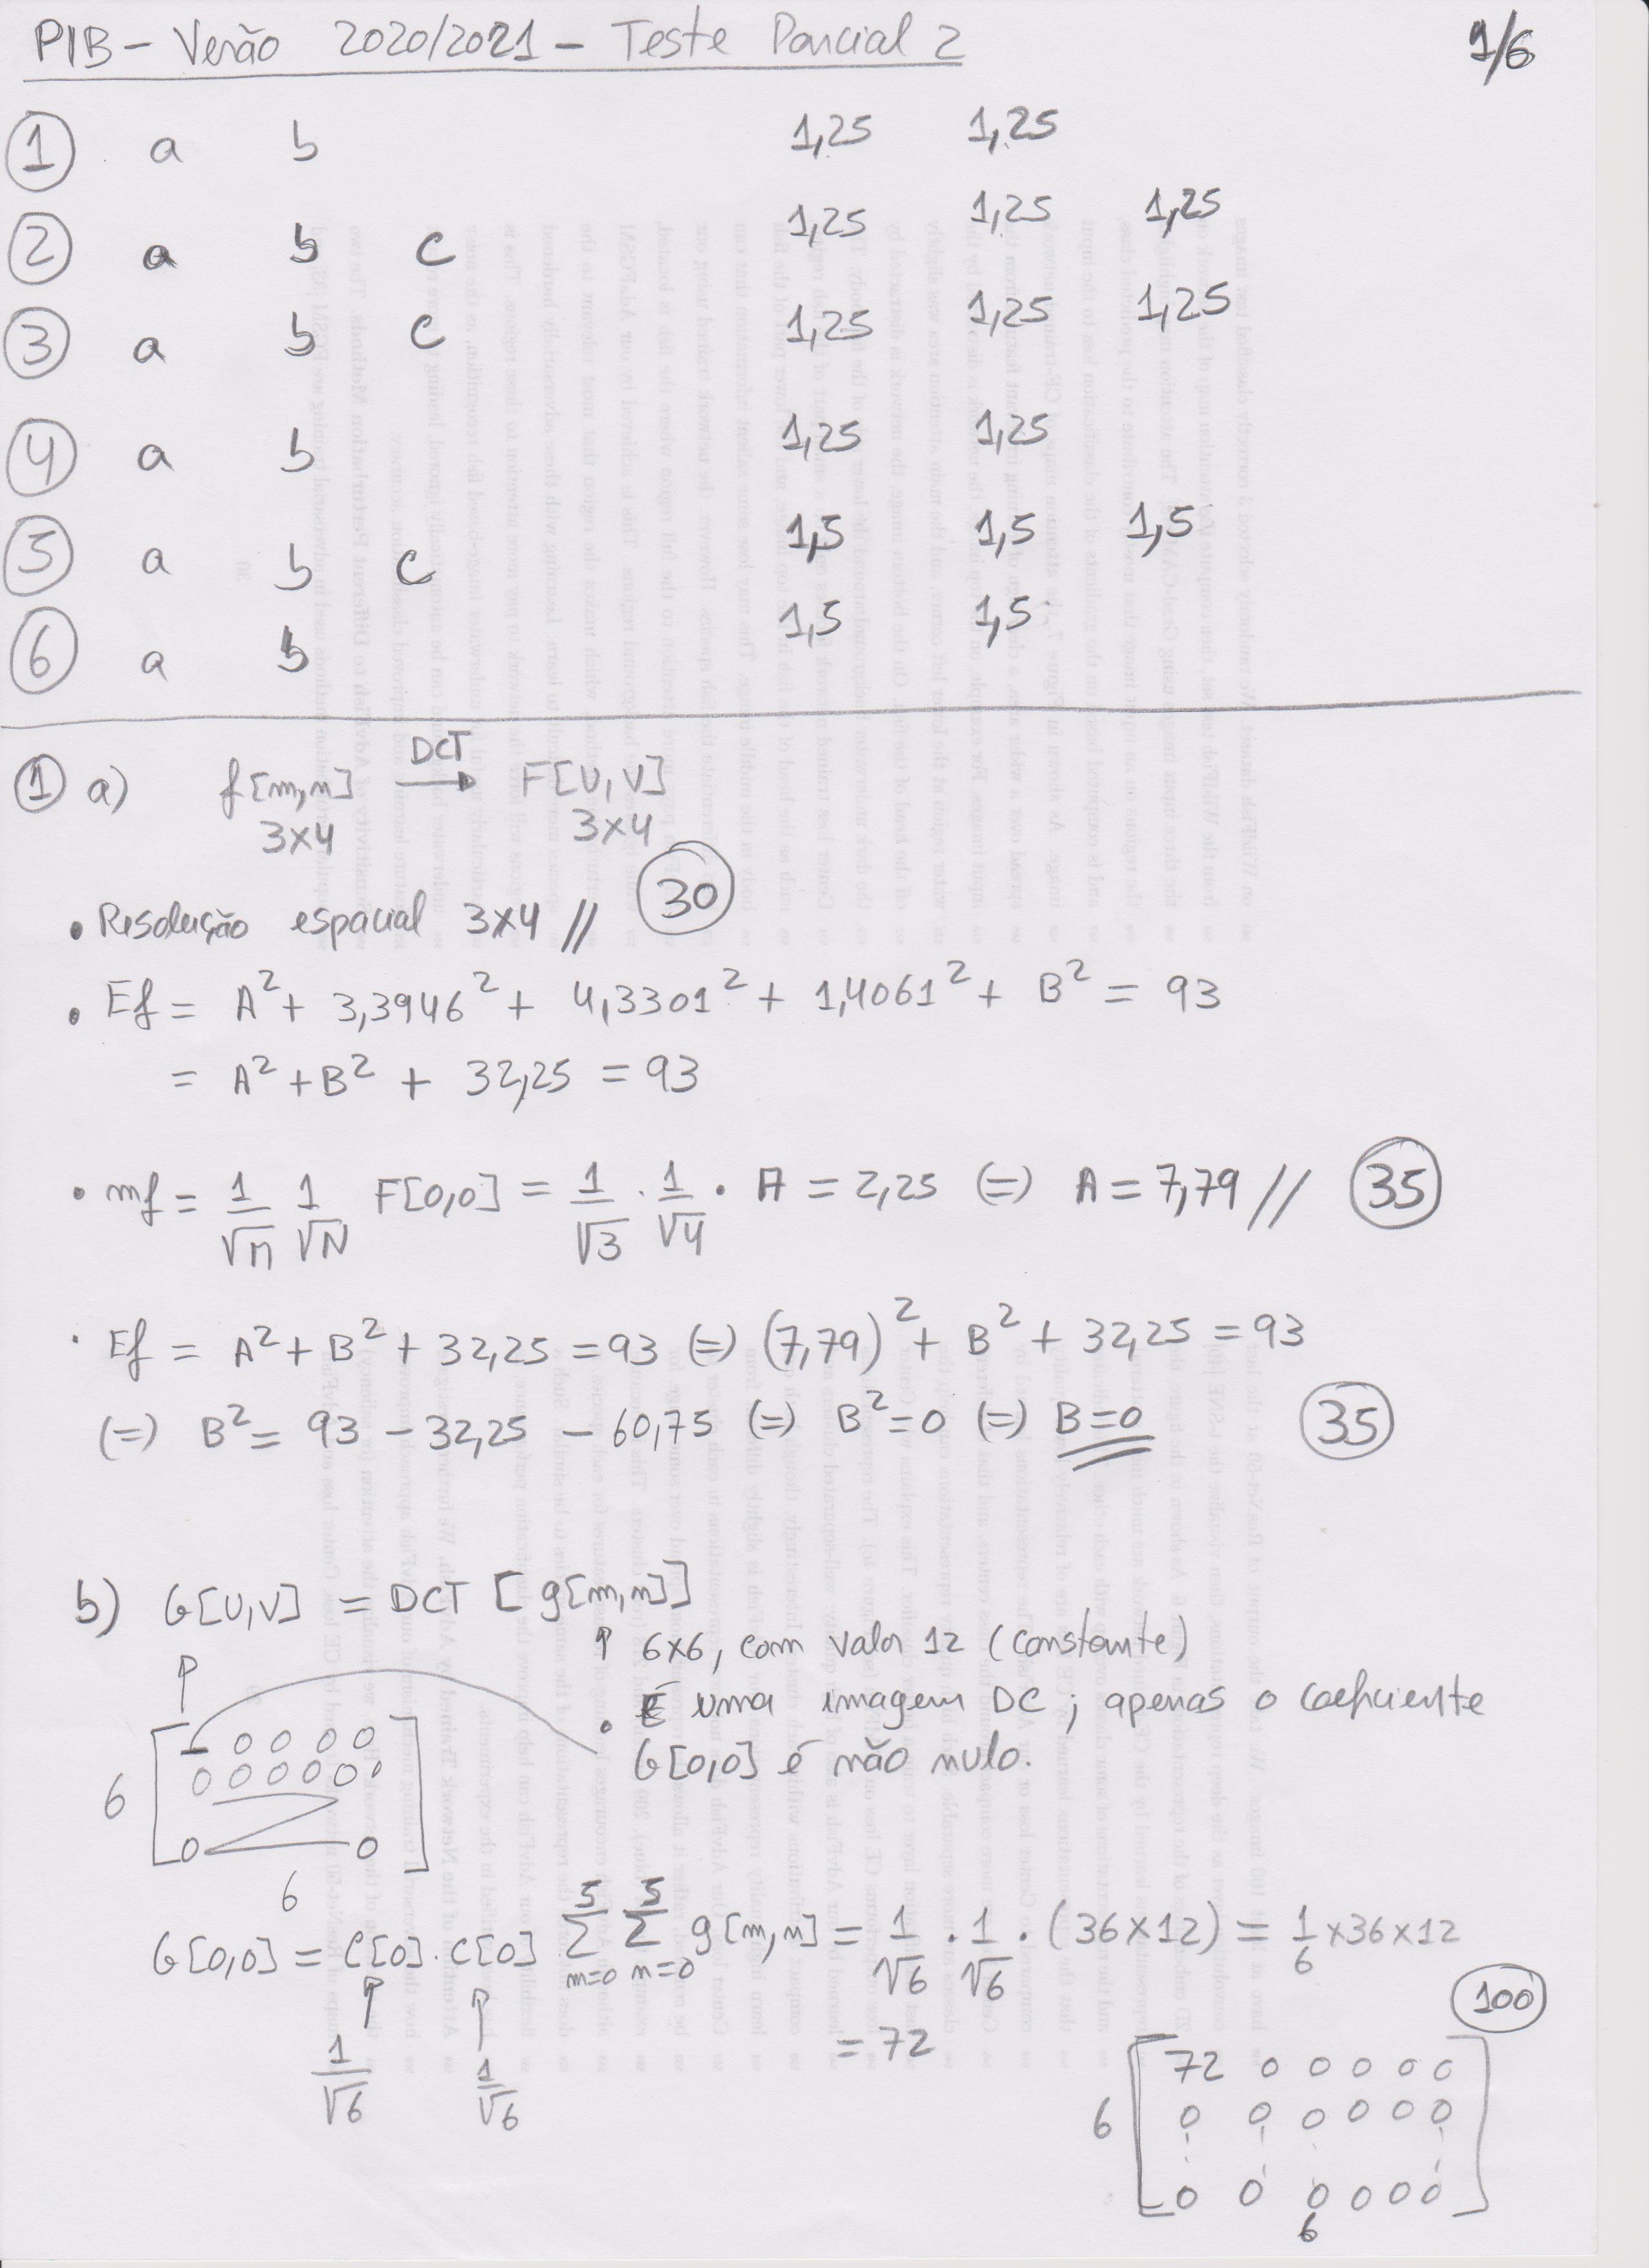 PIB - Verão 2020/2021 - Teste Parcial 2 1/6
1 a b 1,25 1,25
2 a b c 1,25 1,25 1,25
3 a b c 1,25 1,25 1,25
4 a b 1,25 1,25
5 a b c 1,5 1,5 1,5
6 a b 1,5 1,5
1 a) f[m,n] DCT → F[U,V]
3x4 3x4
• Resolução espacial 3x4 // 30
• Ef = A² + 3,3946² + 4,3301² + 1,4061² + B² = 93
= A² + B² + 32,25 = 93
• mf = 1/√M 1/√N F[0,0] = 1/√3 . 1/√4 . A = 2,25 (=) A = 7,79 // 35
• Ef = A² + B² + 32,25 = 93 (=) (7,79)² + B² + 32,25 = 93
(=) B² = 93 - 32,25 - 60,75 (=) B² = 0 (=) B = 0 35
b) G[U,V] = DCT [g[m,n]]
↑ 6x6, com valor 12 (constante)
• É uma imagem DC ; apenas o coeficiente
G[0,0] é não nulo.
↑
- 0 0 0 0
6 0 0 0 0 0
0 0
6
G[0,0] = C[0] . C[0] 5 Σ m=0 5 Σ n=0 g[m,n] = 1/√6 . 1/√6 . (36x12) = 1/6 x 36 x 12
↑ ↑
1/√6 1/√6
= 72
100
72 0 0 0 0 0
6 0 0 0 0 0 0
0 0 0 0 0 0
6